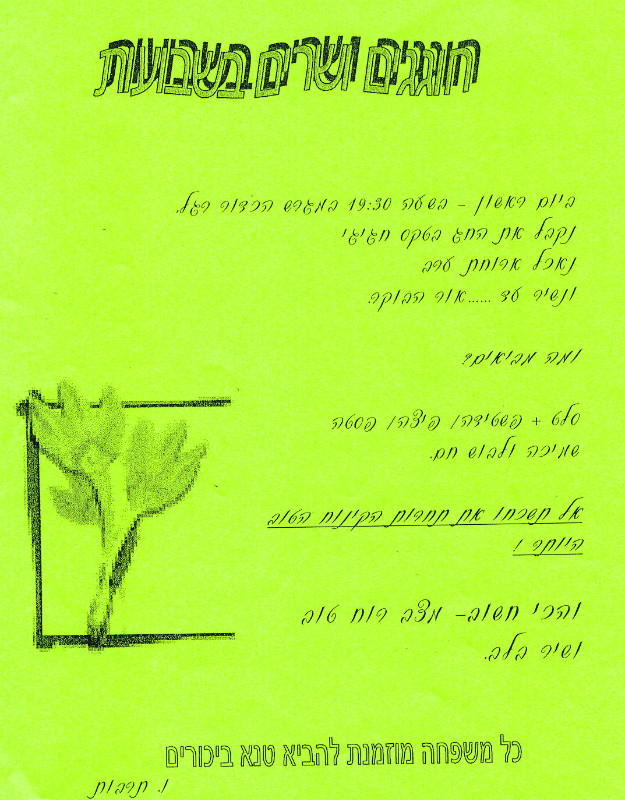 חוגגים ושרים בשבועות
ביום ראשון - בשעה 19:30 במגרש הכדור רגל.
נקבל את החג בטקס חגיגי
נאכל ארוחת ערב
ונשיר עד ......אור הבוקר.
ומה מביאים?
סלט + פשטידה/ פיצה/ פסטה
שמיכה ולבוש חם.
אל תשכחו את תחרות הקינוח הטוב
היותר !
והכי חשוב- מצב רוח טוב
ושיר בלב.
כל משפחה מוזמנת להביא טנא ביכורים
ו. תרבות